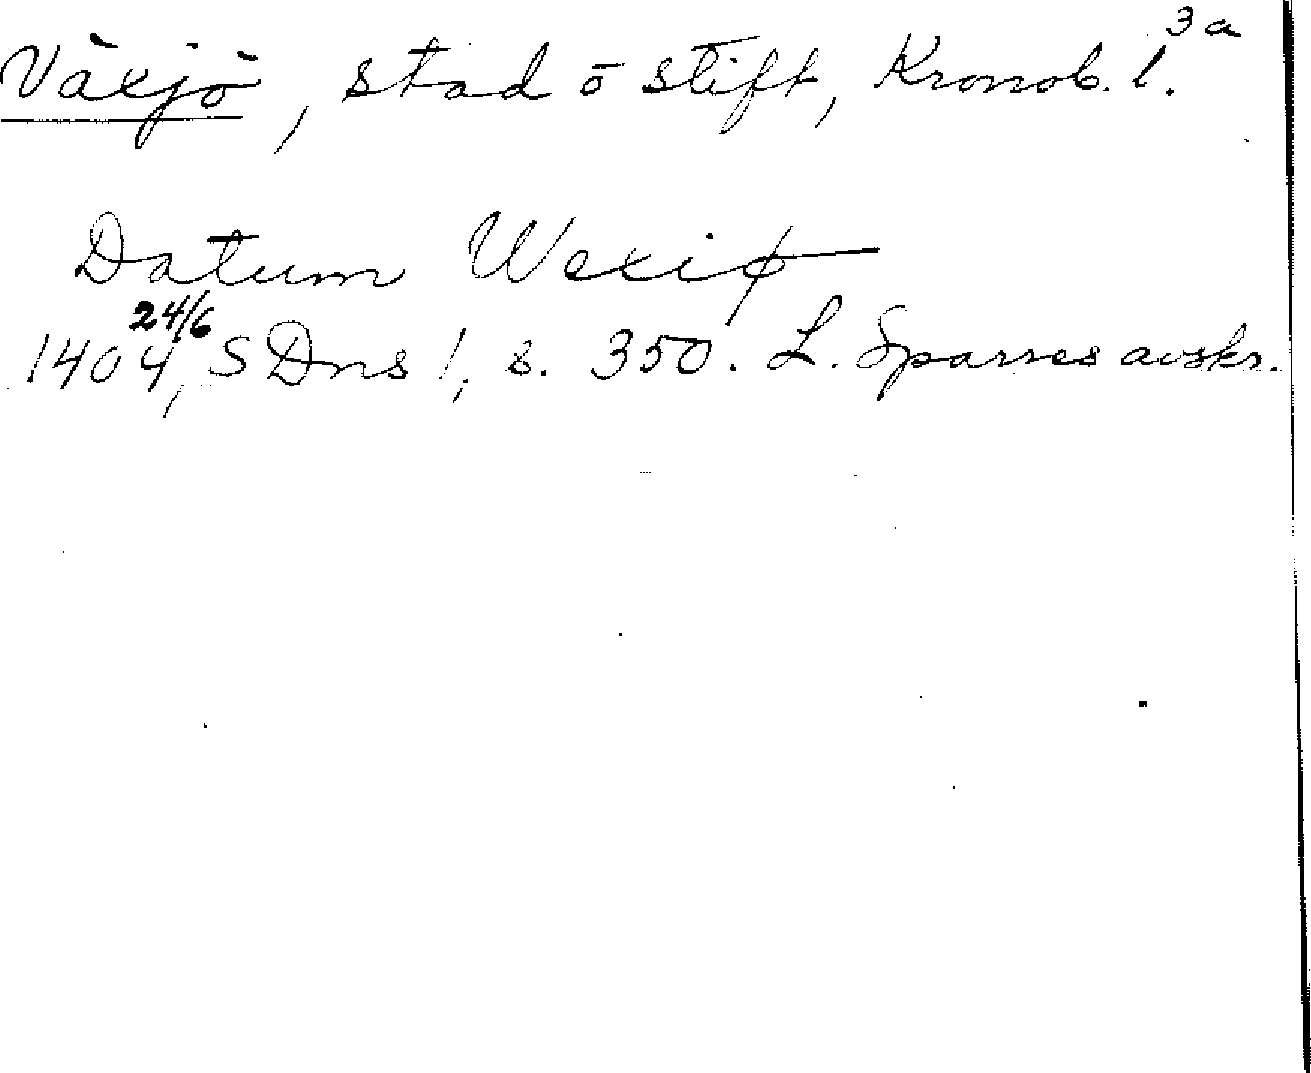 3a
Växjö, stad o stift, Kronob. l.
Datum Wexiø
24/6
1404, SDns 1, s. 350. L. Sparres avskr.